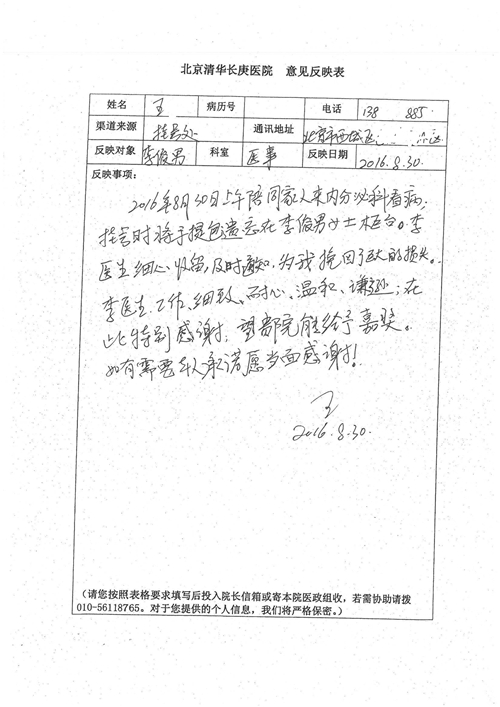 北京清华长庚医院 意见反映表
姓名 王 病历号 电话 138 885
渠道来源 挂号处 通讯地址 北京市西城区
反映对象 李俊男 科室 医事 反映日期 2016.8.30.
反映事项:
2016年8月30日上午陪同家人来内分泌科看病,
挂号时将手提包遗忘在李俊男女士柜台。李
医生细心收留,及时通知,为我挽回了巨大的损失。
李医生工作、细致、耐心、温和、谦逊;在
此特别感谢;望贵院能给予嘉奖。
如有需要本人承诺愿当面感谢!
王
2016.8.30.
(请您按照表格要求填写后投入院长信箱或寄本院医政组收,若需协助请拨
010-56118765。对于您提供的个人信息,我们将严格保密。)